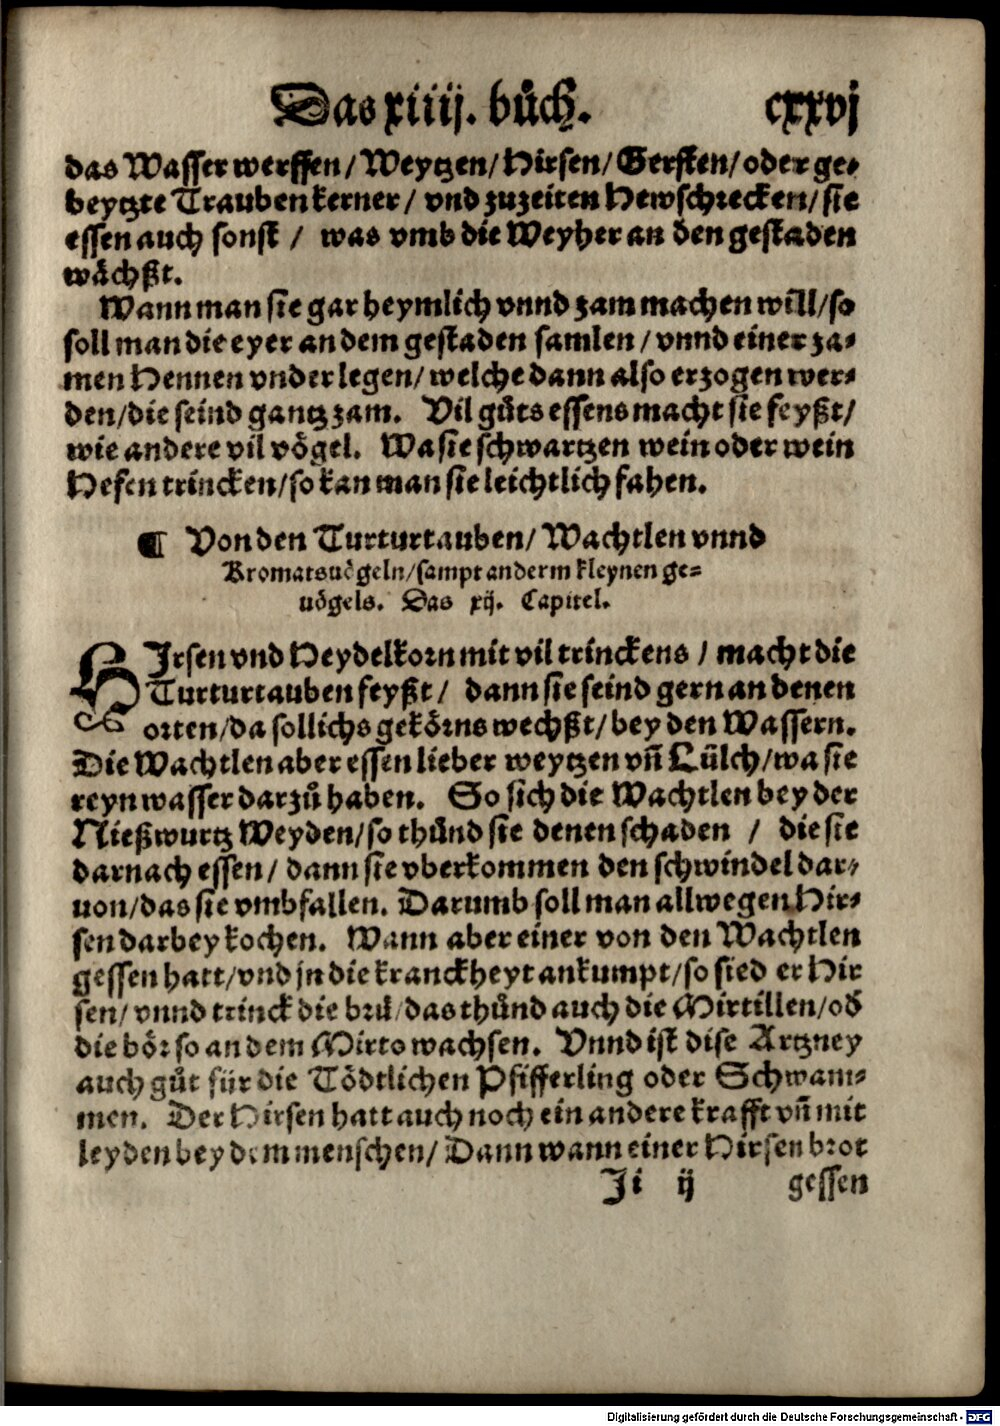 Das xiiij. bůch. cxxvj
das Wasser werffen/ Weytzen/ Hirsen/ Gersten/ oder ge-
beytzte Trauben kerner/ vnd zuzeiten Hewschrecken/ sie
essen auch sonst / was vmb die Weyher an den gestaden
wåchßt.
Wann man sie gar heymlich vnnd zam machen will/ so
soll man die eyer an dem gestaden samlen/ vnnd einer za-
men Hennen vnder legen/ welche dann also erzogen wer-
den/ die seind gantz zam. Vil gůts essens macht sie feyßt/
wie andere vil vögel. Wa sie schwartzen wein oder wein
Hefen trincken/ so kan man sie leichtlich fahen.
¶ Von den Turturtauben/ Wachtlen vnnd
Kromatsuögeln/ sampt anderm kleynen ge-
uögels. Das xij. Capitel.
HIrsen vnd Heydelkorn mit vil trinckens / macht die
Turturtauben feyßt/ dann sie seind gern an denen
orten/ da sollichs gekörns wechßt/ bey den Wassern.
Die Wachtlen aber essen lieber weytzen vñ Lülch/ wa sie
reyn wasser darzů haben. So sich die Wachtlen bey der
Nießwurtz Weyden/ so thůnd sie denen schaden / die sie
darnach essen/ dann sie vberkommen den schwindel dar-
uon/ das sie vmbfallen. Darumb soll man allwegen Hir-
sen darbey kochen. Wann aber einer von den Wachtlen
gessen hatt/ vnd jn die kranckheyt ankumpt/ so sied er Hir
sen/ vnnd trinck die brü/ das thůnd auch die Mirtillen/ od
die bör so an dem Mirto wachsen. Vnnd ist dise Artzney
auch gůt für die Tödtlichen Pfifferling oder Schwam-
men. Der Hirsen hatt auch noch ein andere krafft vñ mit
leyden bey dem menschen/ Dann wann einer Hirsen brot
Ji ij gessen
Digitalisierung gefördert durch die Deutsche Forschungsgemeinschaft - DFG